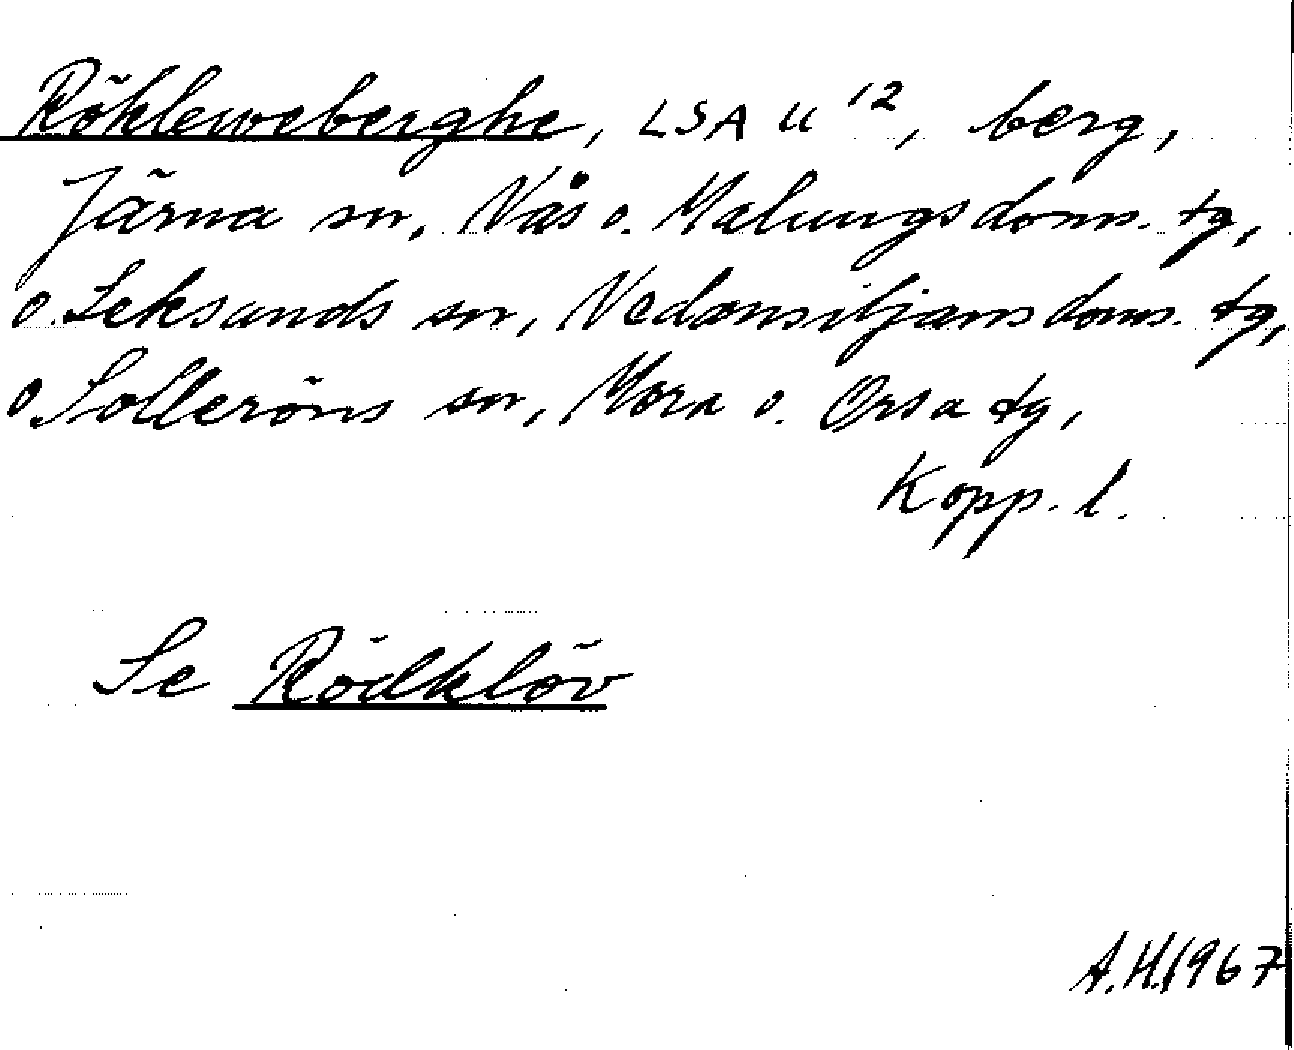 Rökleweberghe, LSA U 12, berg,
Järna sn, Nås o. Malungs doms. tg,
o. Leksands sn, Nedansiljans doms. tg,
o Solleröns sn, Mora o. Orsa tg,
Kopp. l.
Se Rödklöv
A.H.1967